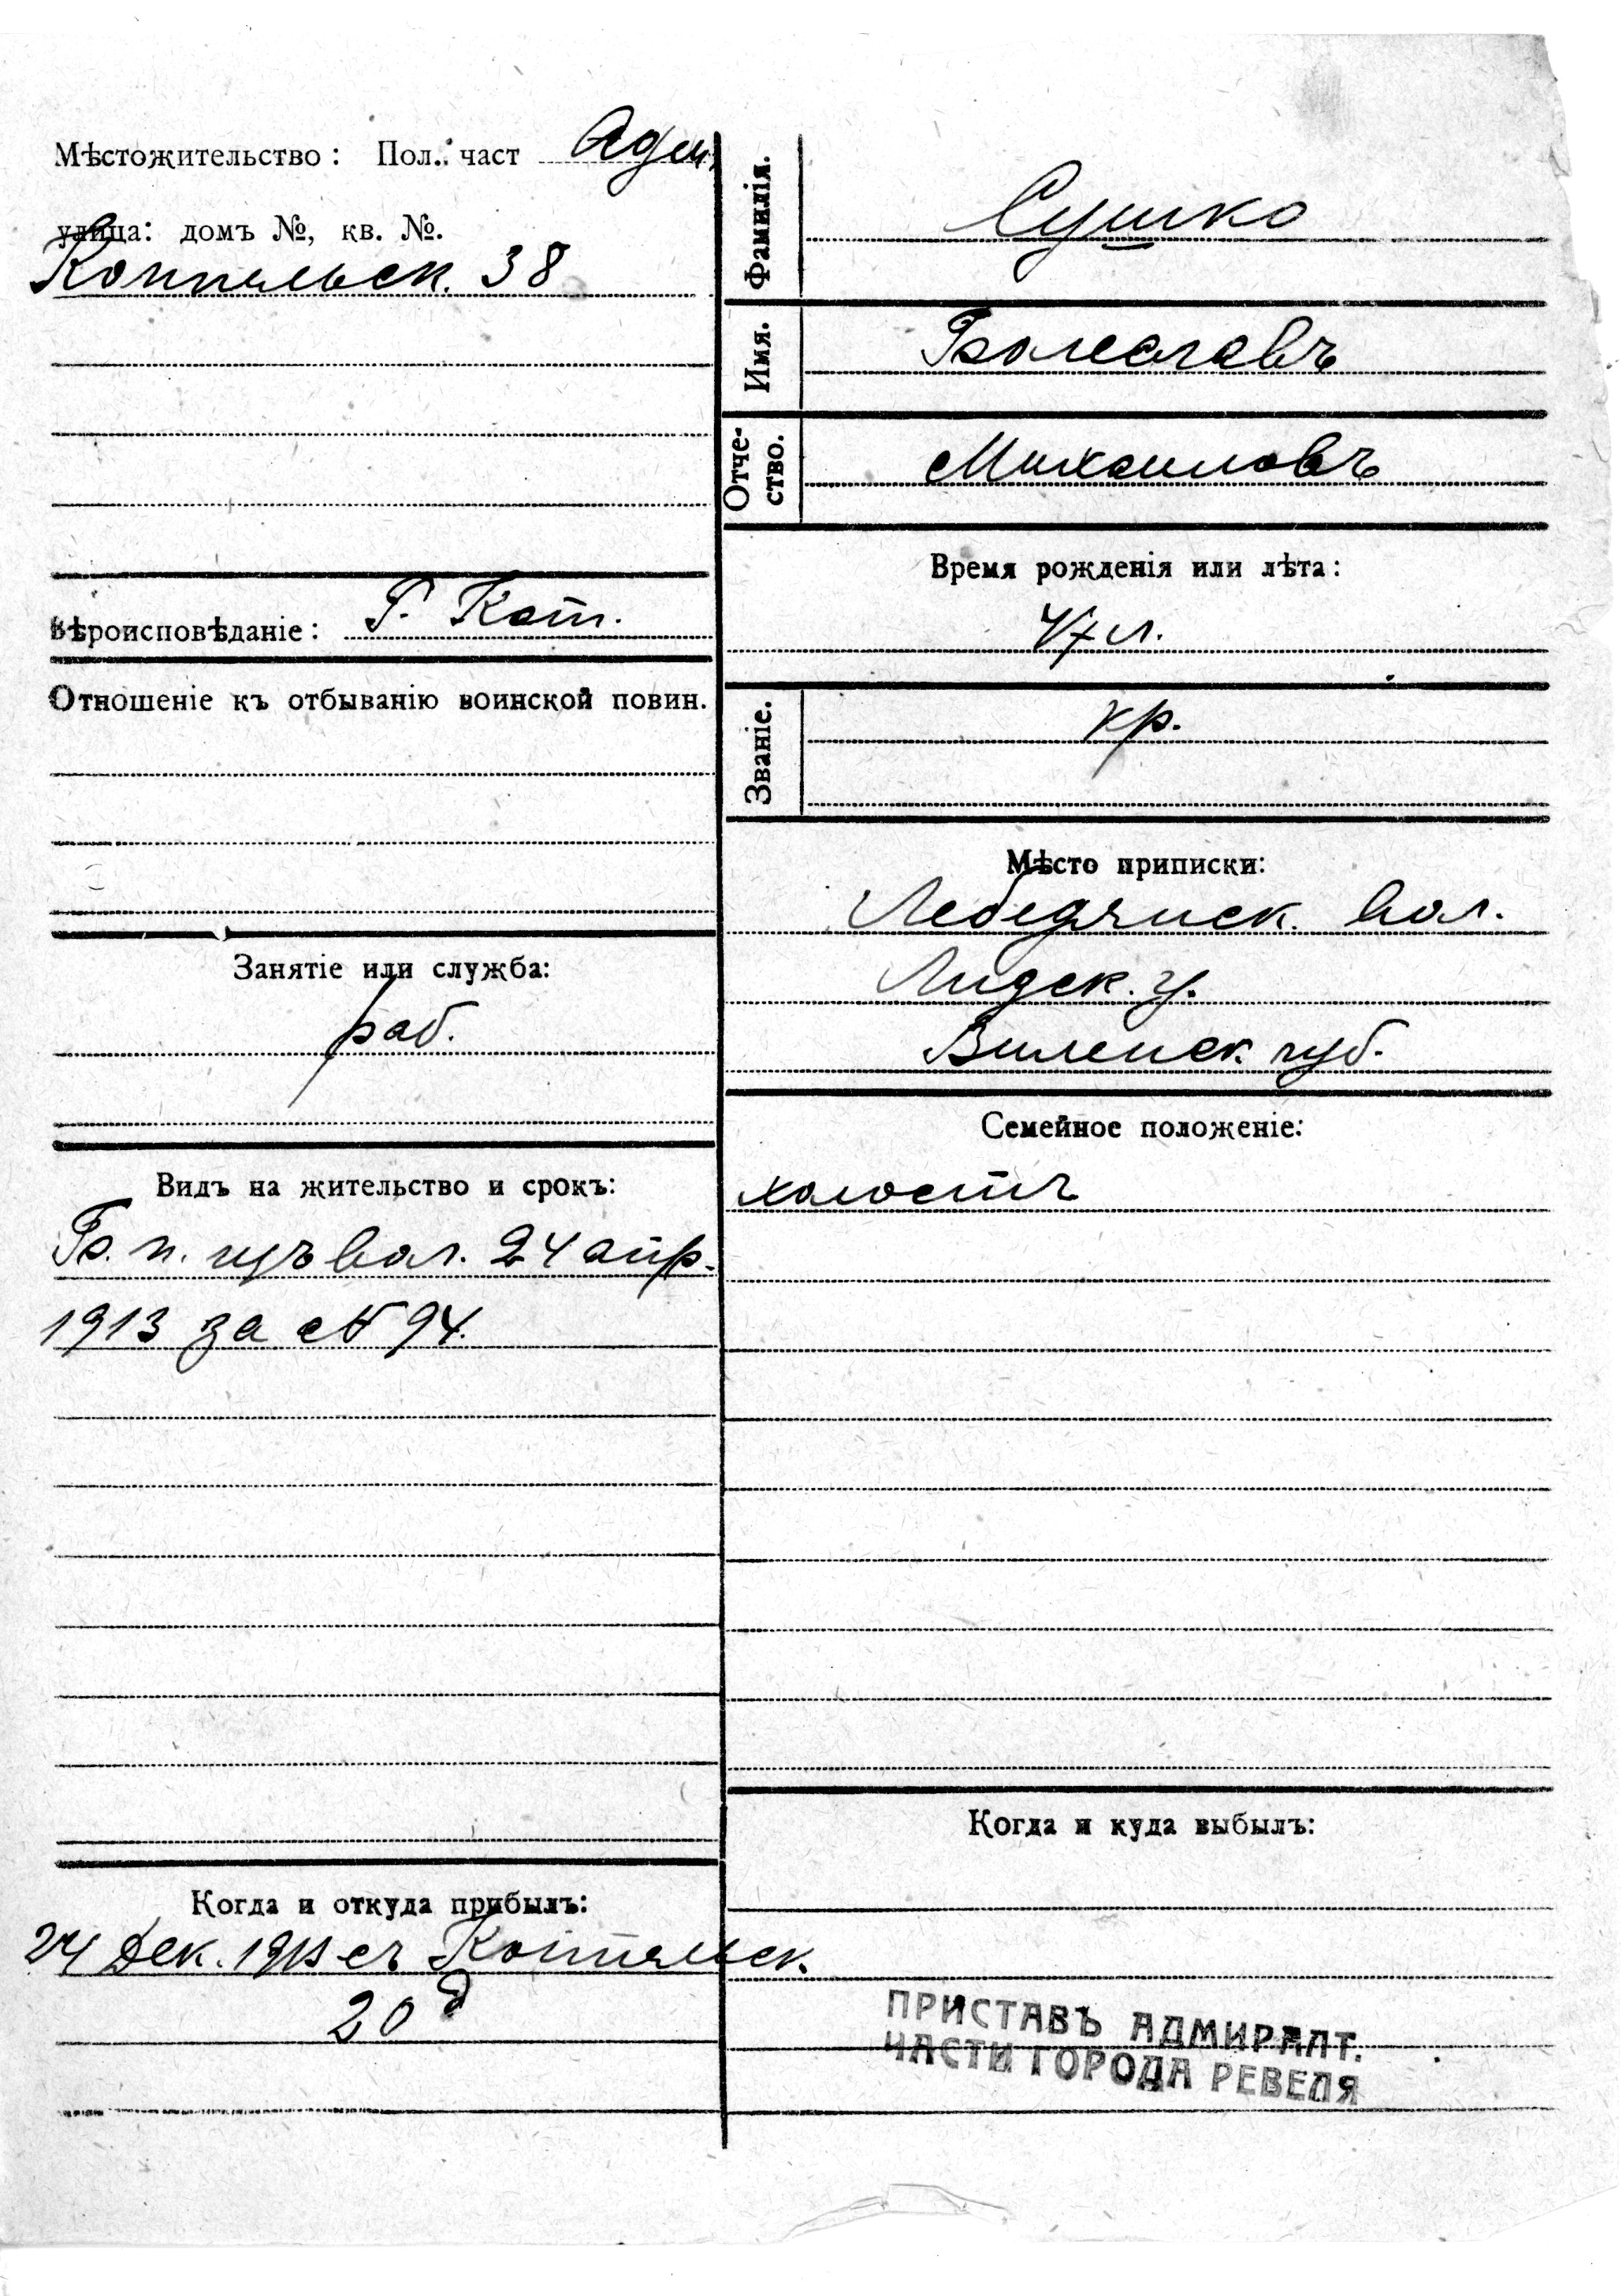 Мѣстожительство: Пол. част Адм.
улица: домъ №, кв. №.
Коппельск. 38
Вѣроисповѣданіе: Р. Кат.
Отношеніе къ отбыванію воинской повин.
Занятіе или служба:
раб.
Видъ на жительство и срокъ:
Б. п. изъ вол. 24 апр.
1913 за № 94.
Когда и откуда прибылъ:
24 Дек. съ Коппельск.
20 д
Фамилія. Сушко
Имя. Болеславъ
Отче-
ство. Михаиловъ
Время рожденія или лѣта:
47 л.
Званіе. кр.
Мѣсто приписки:
Лебедянск. вол.
Лидск. у.
Виленск. губ.
Семейное положеніе:
холостъ
Когда и куда выбылъ:
ПРИСТАВЪ АДМИРАЛТ.
ЧАСТИ ГОРОДА РЕВЕЛЯ